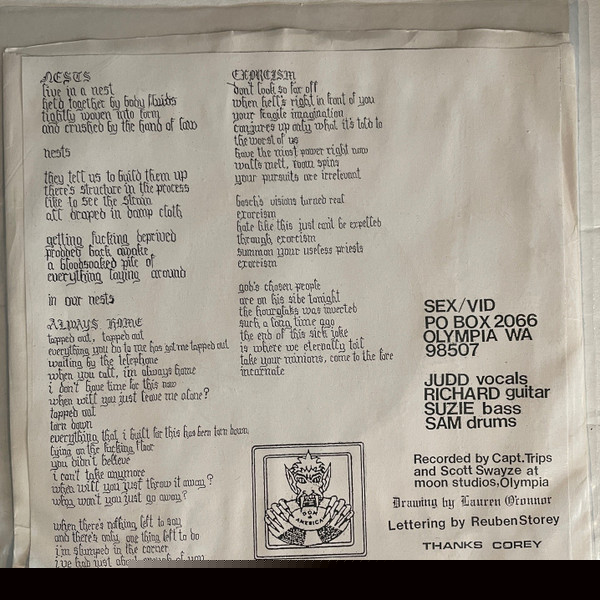 NESTS
live in a nest
held together by body fluids
tightly woven into form
and crushed by the hand of law
nests
they tell us to build them up
there's structure in the process
like to see the strain
all draped in damp cloth
getting fucking deprived
prodded back awake
a bloodsoaked pile of
everything laying around
in our nests
ALWAYS HOME
tapped out, tapped out
everything you do to me has got me tapped out
waiting by the telephone
when you call, im always home
i don't have time for this now
when will you just leave me alone?
tapped out
torn down
everything that i built for this has been torn down
lying on the fucking floor
you didn't believe
i can't take anymore
when will you just throw it away?
why won't you just go away?
when there's nothing left to say
and there's only one thing left to do
i'm slumped in the corner
i've had just about enough of you
EXORCISM
don't look so far off
when hell's right in front of you
your fragile imagination
conjures up only what it's told to
the worst of us
have the most power right now
walls melt, room spins
your pursuits are irrelevant
bosch's visions turned real
exorcism
hate like this just can't be expelled
through exorcism
summon your useless priests
exorcism
god's chosen people
are on his side tonight
the hourglass was inverted
such a long time ago
the end of this sick joke
is where we eternally toil
take your minions, come to the fore
incarnate
SEX/VID
PO BOX 2066
OLYMPIA WA
98507
JUDD vocals
RICHARD guitar
SUZIE bass
SAM drums
Recorded by Capt.Trips
and Scott Swayze at
moon studios,Olympia
Drawing by Lauren O'connor
Lettering by Reuben Storey
THANKS COREY
AMERICA